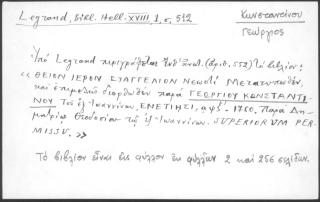 Legrand, Bibl. Hell. XVIII, 1, σ. 512
Κωνσταντίνου
Γεώργιος
Ὑπὸ Legrand περιγράφεται (ἀριθ. 552) τὸ βιβλίον:
« ΘΕΙΟΝ ΙΕΡΟΝ ΕΥΑΓΓΕΛΙΟΝ Νεωστὶ Μετατυπωθὲν,
καὶ ἐπιμελῶς διορθωθὲν παρὰ ΓΕΩΡΓΙΟΥ ΚΩΝΣΤΑΝΤΙ-
ΝΟΥ τοῦ ἐξ Ἰωαννίνων. ΕΝΕΤΙΗΣΙ, αψξ΄. 1760. Παρὰ Δη-
μητρίῳ Θεοδοσίου τῷ ἐξ Ἰωαννίνων. SUPERIORUM PER-
MISSU. »
Τὸ βιβλίον εἶναι εἰς φύλλον ἐκ φύλλων 2 καὶ 256 σελίδων.